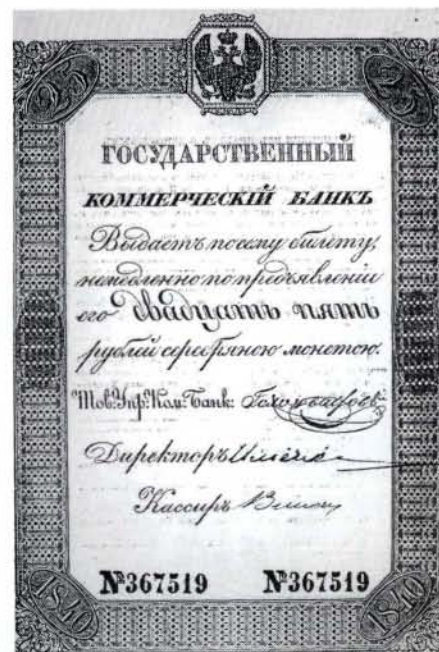 25 25
ГОСУДАРСТВЕННЫЙ
КОММЕРЧЕСКІЙ БАНКЪ
Выдаетъ посему билету,
немедленно по предъявленіи
его двадцать пять
рублей серебряною монетою.
Тов: Упр: Ком: Банк:
Директоръ
Кассиръ
№367519 №367519
1840 1840